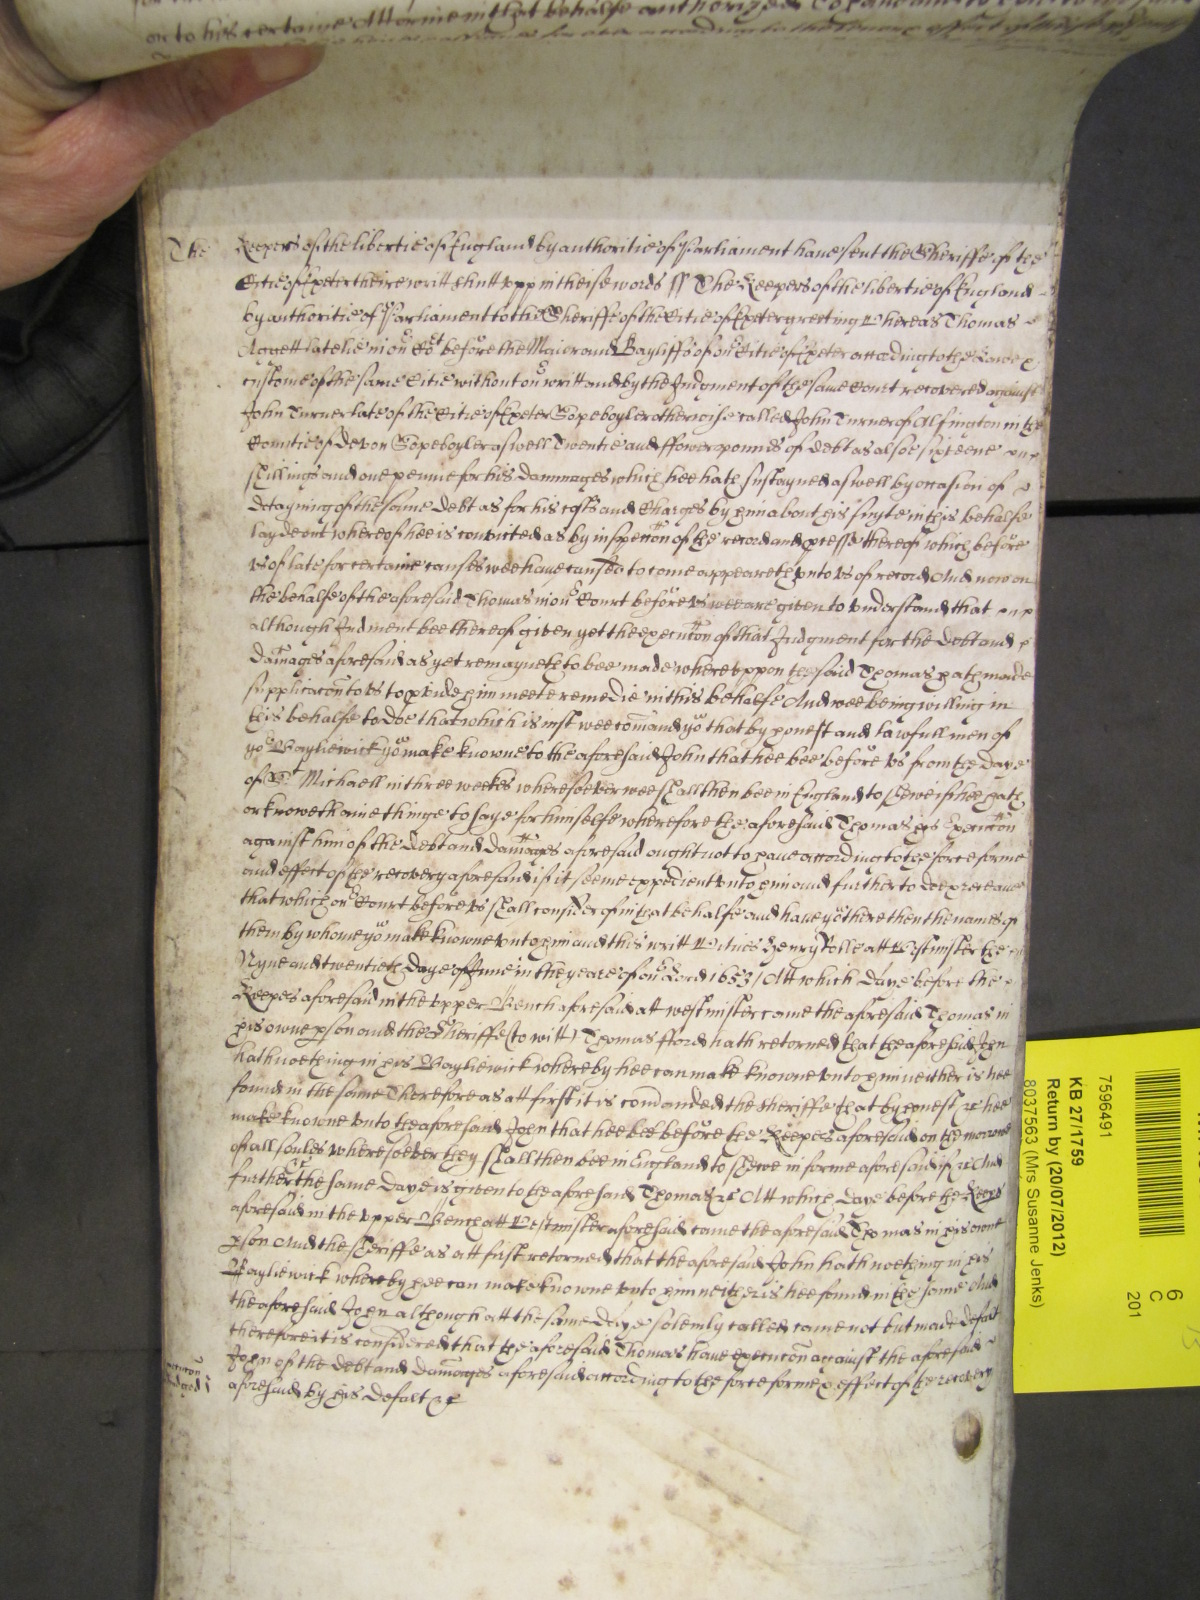 on to his certaine Attorney in that behalfe authorized
The Keepers of the libertie of England by authoritie of Parliament have sent the Sheriffe of the
Citie of Exeter theire writt shutt upp in theise words ss The Keepers of the libertie of England
by authoritie of Parliament to the Sheriffe of the Citie of Exeter greeting Whereas Thomas
Aggett latelie in our Cort before the Maior and Bayliffs of our Citie of Exeter according to the Lawe &
custome of the same Citie without our writt and by the Judgment of the same Court recovered against
John Turner late of the Citie of Exeter Sopeboyler otherwise called John Turner of Alfington in the
Countie of Devon Sopeboyler aswell Twentie and ffower pounds of debt as alsoe sixteene
shillings and one pennie for his dammages which hee hath sustayned aswell by occasion of
detayning of the same Debt as for his costs and Charges by him about his suyte in this behalfe
layde out whereof hee is convicted as by inspeccon of the record and processe thereof which before
us of late for certaine causes wee have caused to come appeareth unto us of record And now on
the behalfe of the aforesaid Thomas in our Court before us wee are given to understand that
although Judment bee thereof given yet the execucon of that Judgment for the Debt and
Damages aforesaid as yet remayneth to bee made whereuppon the said Thomas hath made
supplicacon to us to provide him meete remedie in this behalfe And wee being willing in
this behalfe to doe that which is just wee comand you that by honest and lawfull men of
yor Bayliewick you make knowne to the aforesaid John that hee bee before us from the Daye
of St Michaell in three weekes wheresoever wee shall then bee in England to shewe if hee hath
or knoweth anie thinge to saye for himselfe wherefore the aforesaid Thomas his Execucon
against him of the Debt and Damages aforesaid ought not to have according to the force forme
and effect of the recovery aforesaid if it seeme expedient unto him and further to doe & receave
that which our Court before us shall consider of in that behalfe and have you there then the names of
them by whome you make knowne unto him and this writt Witnes Henry Rolle att Westminster the
Nyne and twentieth Daye of June in the yeare of our Lord 1653 / Att which Daye before the
Keepers aforesaid in the upper Bench aforesaid att westminster came the aforesaid Thomas in
his owne person and the Sheriffe (to witt) Thomas fford hath retorned that the aforesaid John
hath noething in his Bayliewick whereby hee can make knowne unto him neither is hee
found in the same Therefore as att first it is comanded the Sheriffe that by honest &c hee
make knowne unto the aforesaid John that hee bee before the Keepers aforesaid on the morrowe
of all soules wheresoever they shall then bee in England to shewe in forme aforesaid if &c And
further the same Daye is given to the aforesaid Thomas &c Att which Daye before the Keeps
aforesaid in the upper Bench att Westminster aforesaid came the aforesaid Thomas in his owne
pson And the Sheriffe as att first retorned that the aforesaid John hath noething in his
Bayliewick whereby hee can make knowne unto him neither is hee found in the same And
the aforesaid John although att the same Daye solemly called came not but made default
therefore it is considered that the aforesaid Thomas have execucon against the aforesaid
John of the Debt and Damages aforesaid according to the force forme & effect of the recovery
aforesaid by his Default &c
7596491
KB 27/1759
Return by (20/07/2012)
8037563 (Mrs Susanne Jenks)
6
C
201